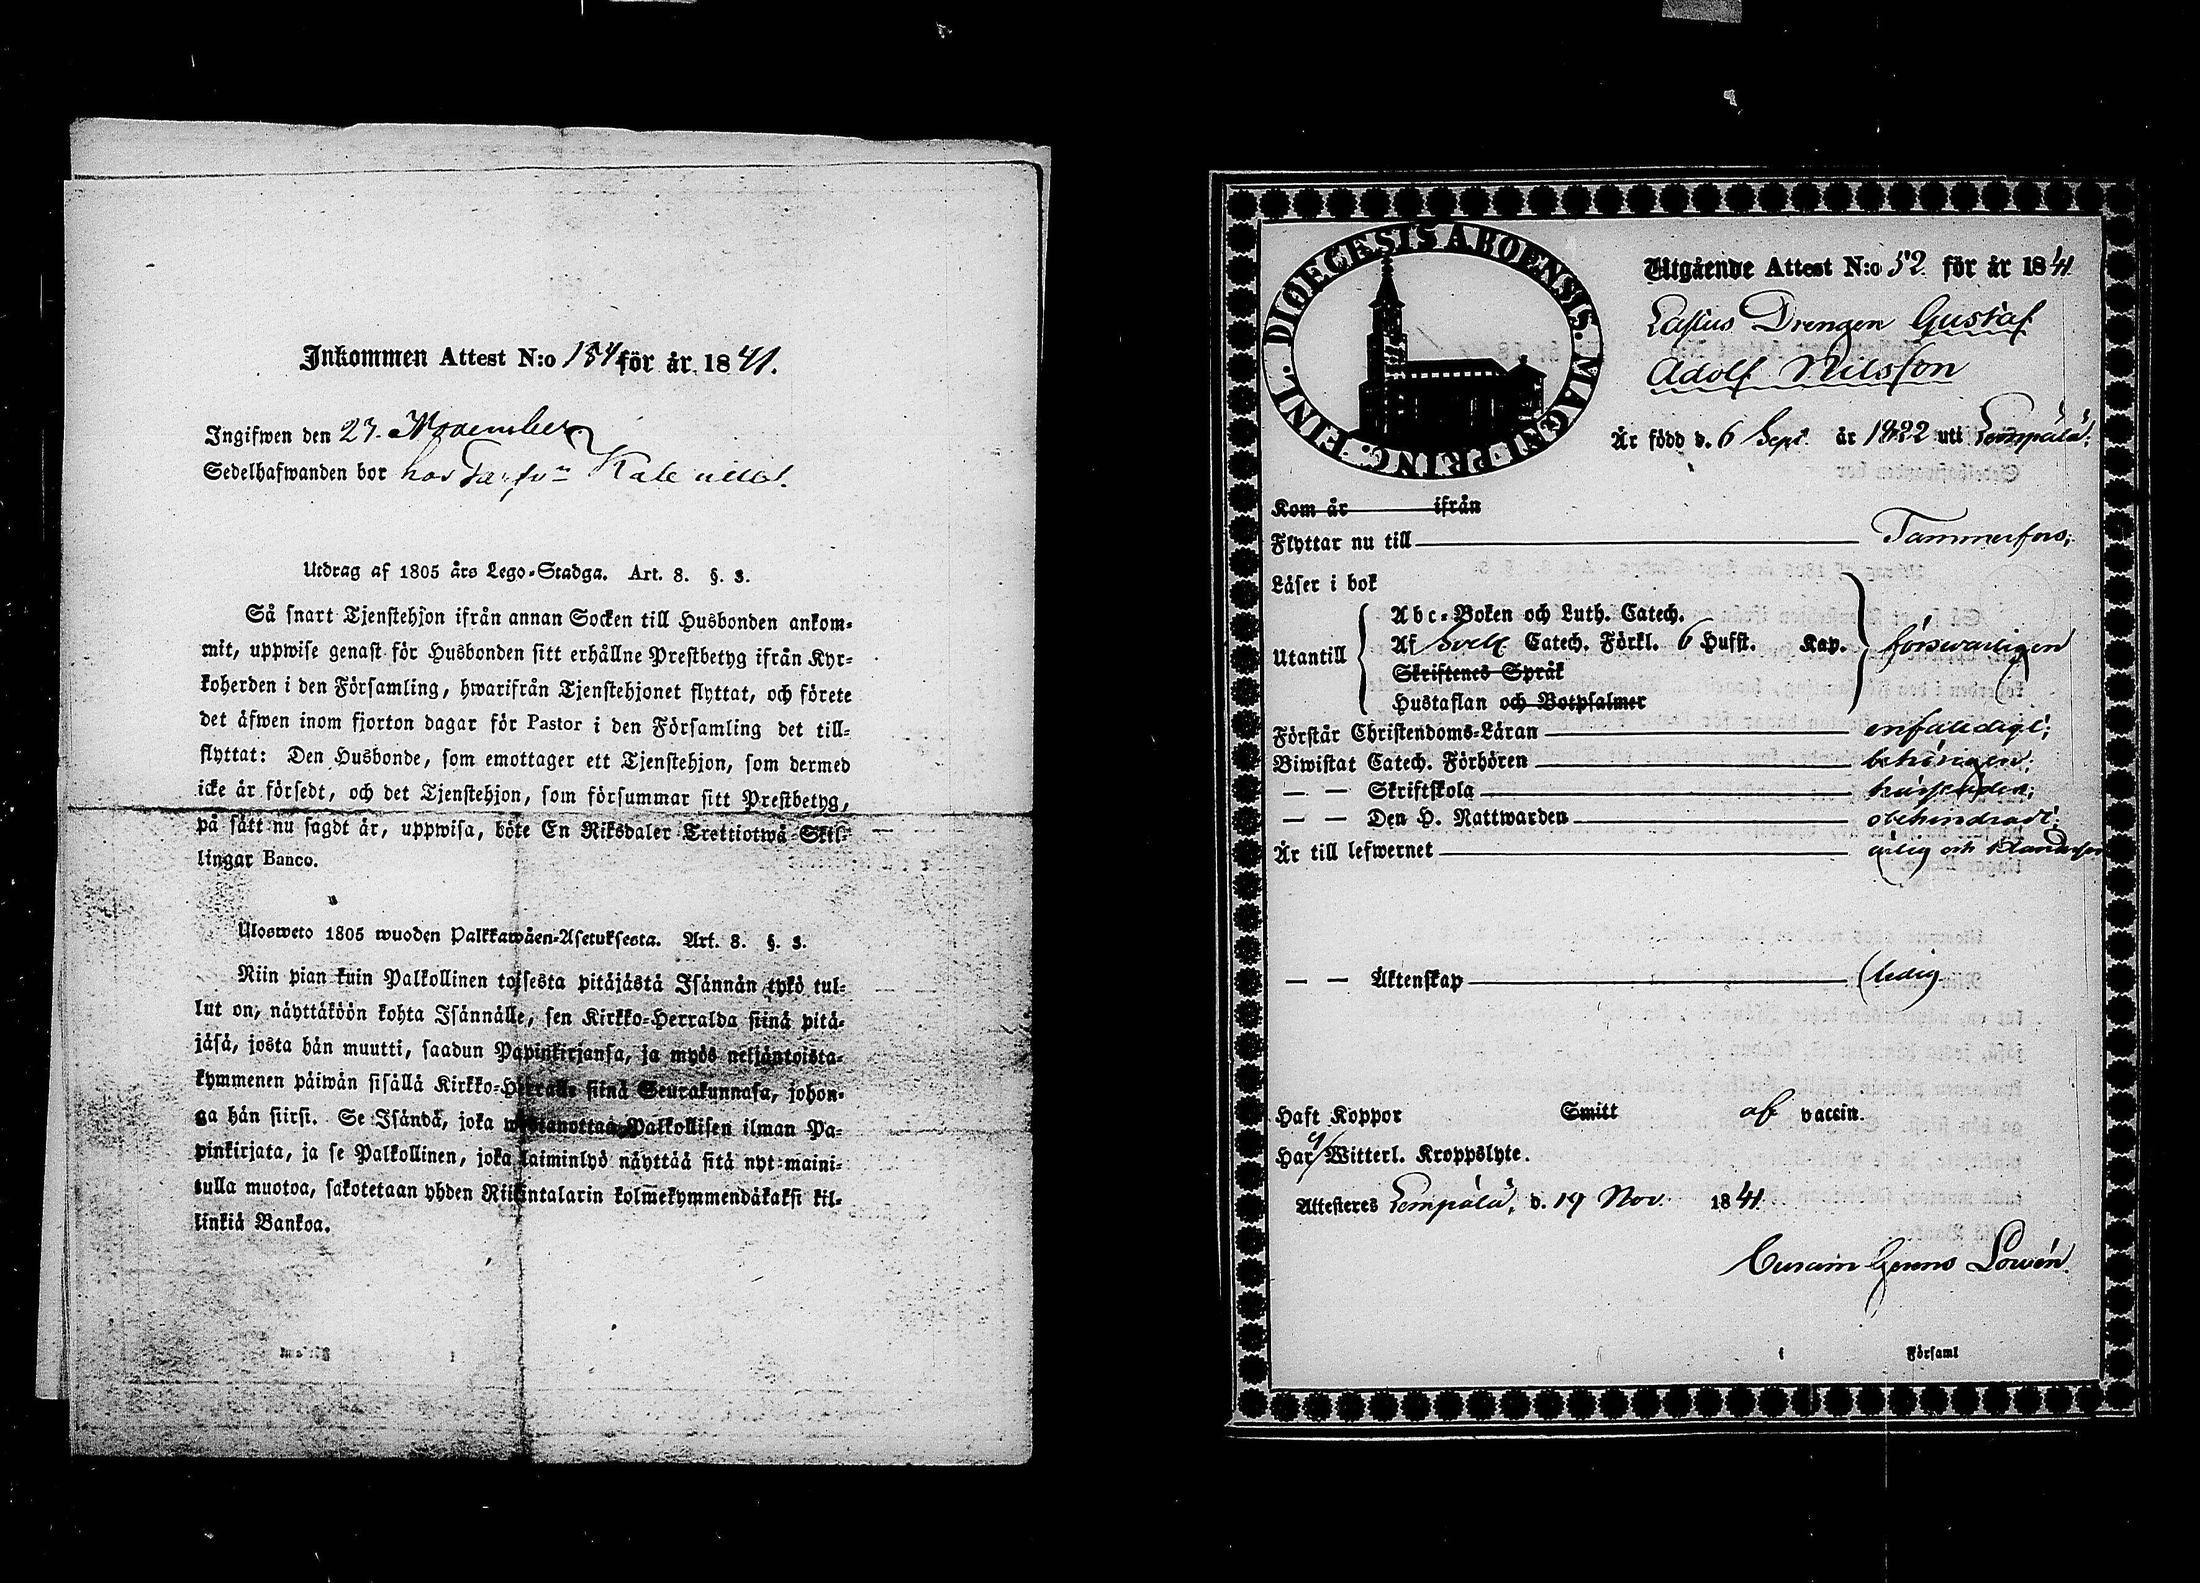 Inkommen Attest N:o 154 för år 1841.
Ingifwen den 27. November
Sedelhafwanden bor hos
Utdrag af 1805 års Lego-Stadga. Art. 8. §. 3.
Så snart Tjenstehjon ifrån annan Socken till Husbonden ankom-
mit, uppwise genast för Husbonden sitt erhållne Prestbetyg ifrån Kyr-
koherden i den Församling, hwarifrån Tjenstehjonet flyttat, och förete
det äfwen inom fjorton dagar för Pastor i den Församling det till-
flyttat: Den Husbonde, som emottager ett Tjenstehjon, som dermed
icke är försedt, och det Tjenstehjon, som försummar sitt Prestbetyg,
på sätt nu sagdt är, uppwisa, böte En Riksdaler Trettiotwå Skil-
lingar Banco.
Ulosweto 1805 wuoden Palkkawäen-Asetuksesta. Art. 8. §. 3.
Niin pian kuin Palkollinen toisesta pitäjästä Isännän tykö tul-
lut on, näyttäköön kohta Isännälle, sen Kirkko-Herralda siinä pitä-
jäsä, josta hän muutti, saadun Papinkirjansa, ja myös neljäntoista-
kymmenen päiwän sisällä Kirkko-Herralle siinä Seurakunnasa, johon-
ga hän siirsi. Se Isändä, joka wastanottaa Palkollisen ilman Pa-
pinkirjata, ja se Palkollinen, joka laiminlyö näyttää sitä nyt maini-
tulla muotoa, sakotetaan yhden Riikintalarin kolmekymmendäkaksi kil-
linkiä Bankoa.
DIOECESIS ABOENSIS. MAGNI PRINC. FINL.
Utgående Attest N:o 52 för år 1841
Drengen Gustaf
Adolf Nilsson
Är född d. 6 Sept. år 1822 uti Lempälä;
Kom år ifrån
Flyttar nu till Tammerfors;
Läser i bok
Utantill
Abc-Boken och Luth. Catech.
Af Svell. Catech. Förkl. 6 Hufst. Kap.
Skriftenes Språk
Hustaflan och Botpsalmer
försvarligen
Förstår Christendoms-Läran enfaldigt;
Biwistat Catech. Förhören behörigen;
— — Skriftskola
— — Den H. Nattwarden obehindrad;
Är till lefwernet ärlig och
— — Äktenskap ledig
Haft Koppor Smitt af vaccin.
Har Witterl. Kroppslyte.
Attesteras Lempälä, d. 19 Nov. 1841.
Lowén.
i Församl